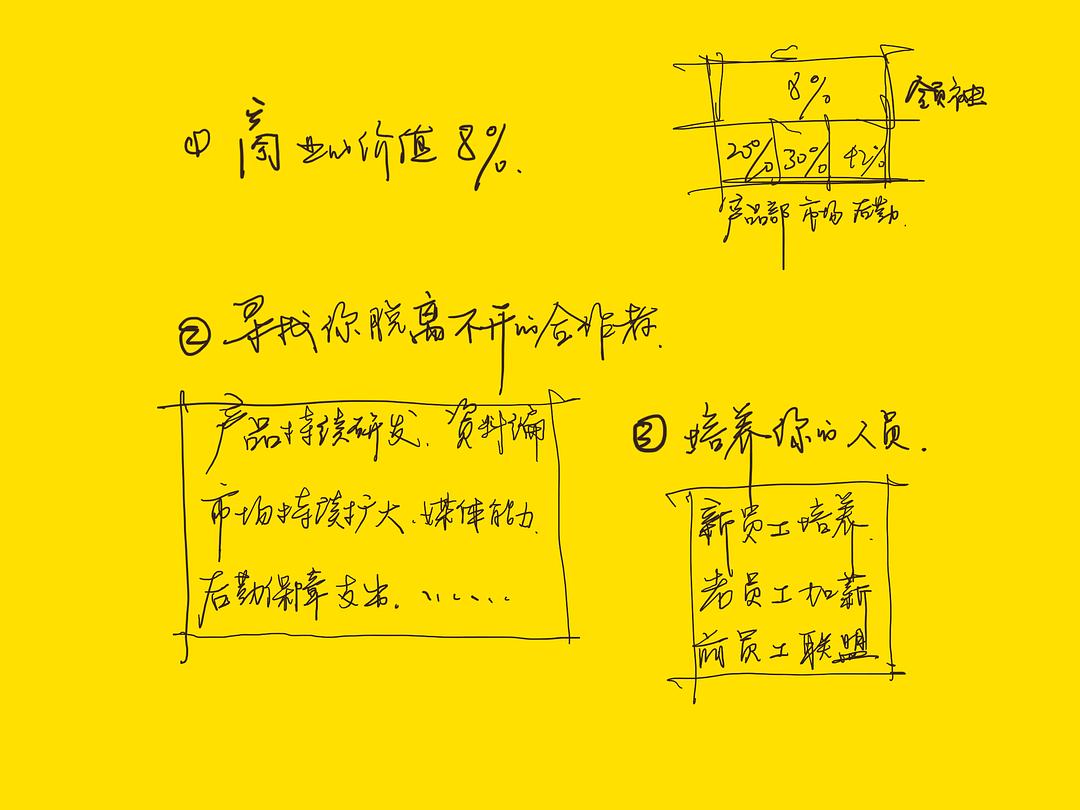 ① 商业的价值 8%.
8%
20% 30% 42%
产品部 市场 后勤.
② 寻找你脱离不开的合作者.
产品持续研发. 资料编
市场持续扩大. 媒体能力.
后勤保障支出. ......
③ 培养你的人员.
新员工培养.
老员工加薪
前员工联盟